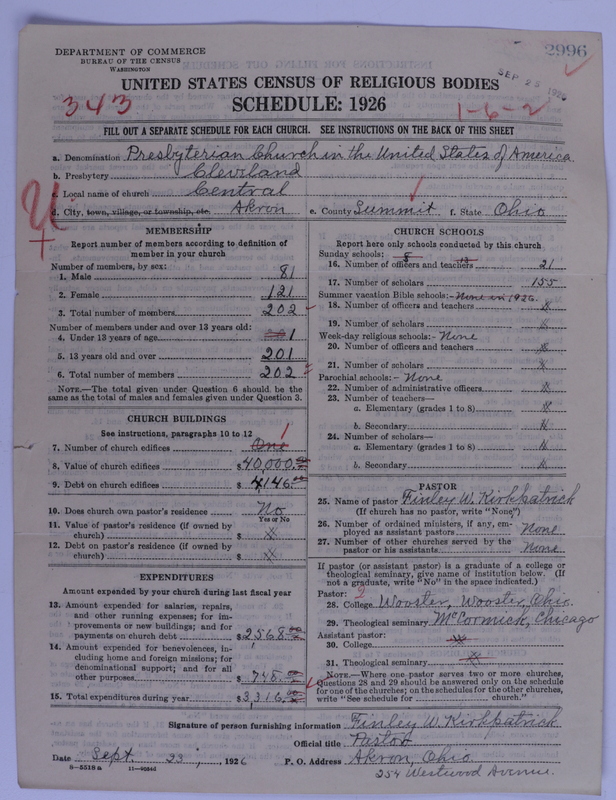 DEPARTMENT OF COMMERCE
BUREAU OF THE CENSUS
WASHINGTON
2996
SEP 25 1926
UNITED STATES CENSUS OF RELIGIOUS BODIES
343
SCHEDULE: 1926
1-6-2
FILL OUT A SEPARATE SCHEDULE FOR EACH CHURCH. SEE INSTRUCTIONS ON THE BACK OF THIS SHEET
a. Denomination Presbyterian Church in the United States of America
b. Presbytery Cleveland
c. Local name of church Central
d. City, town, village, or township, etc. Akron e. County Summit f. State Ohio
MEMBERSHIP
Report number of members according to definition of member in your church
Number of members, by sex:
1. Male 81
2. Female 121
3. Total number of members 202
Number of members under and over 13 years old:
4. Under 13 years of age 1
5. 13 years old and over 201
6. Total number of members 202
NOTE.—The total given under Question 6 should be the
same as the total of males and females given under Question 3.
CHURCH BUILDINGS
See instructions, paragraphs 10 to 12
7. Number of church edifices One 1
8. Value of church edifices $40,000.00
9. Debt on church edifices $4146.00
10. Does church own pastor's residence? No
Yes or No
11. Value of pastor's residence (if owned by
church) $ x
12. Debt on pastor's residence (if owned by
church) $ x
EXPENDITURES
Amount expended by your church during last fiscal year
13. Amount expended for salaries, repairs,
and other running expenses; for im-
provements or new buildings; and for
payments on church debt $2,568.00
14. Amount expended for benevolences, in-
cluding home and foreign missions; for
denominational support; and for all
other purposes 748.00
15. Total expenditures during year $3,316.00
CHURCH SCHOOLS
Report here only schools conducted by this church
Sunday schools: 8 13
16. Number of officers and teachers 21
17. Number of scholars 155
Summer vacation Bible schools:- None in 1926.
18. Number of officers and teachers x
19. Number of scholars x
Week-day religious schools:- None
20. Number of officers and teachers x
21. Number of scholars x
Parochial schools:- None
22. Number of administrative officers x
23. Number of teachers—
a. Elementary (grades 1 to 8) x
b. Secondary x
24. Number of scholars—
a. Elementary (grades 1 to 8) x
b. Secondary x
PASTOR
25. Name of pastor Finley W. Kirkpatrick
(If church has no pastor, write "None")
26. Number of ordained ministers, if any, em-
ployed as assistant pastors None
27. Number of other churches served by the
pastor or his assistants None
If pastor (or assistant pastor) is a graduate of a college or
theological seminary, give name of institution below. (If
not a graduate, write "No" in the space indicated.)
Pastor: 2
28. College Wooster, Wooster, Ohio.
29. Theological seminary McCormick, Chicago
Assistant pastor:
30. College x
31. Theological seminary x
NOTE.—Where one pastor serves two or more churches,
Questions 28 and 29 should be answered only on the schedule
for one of the churches; on the schedules for the other churches,
write "See schedule for ........ church."
Signature of person furnishing information Finley W. Kirkpatrick
Official title Pastor
Date Sept. 23, 1926 P. O. Address Akron, Ohio.
8—5518a 11—9084d 254 Westwood Avenue.